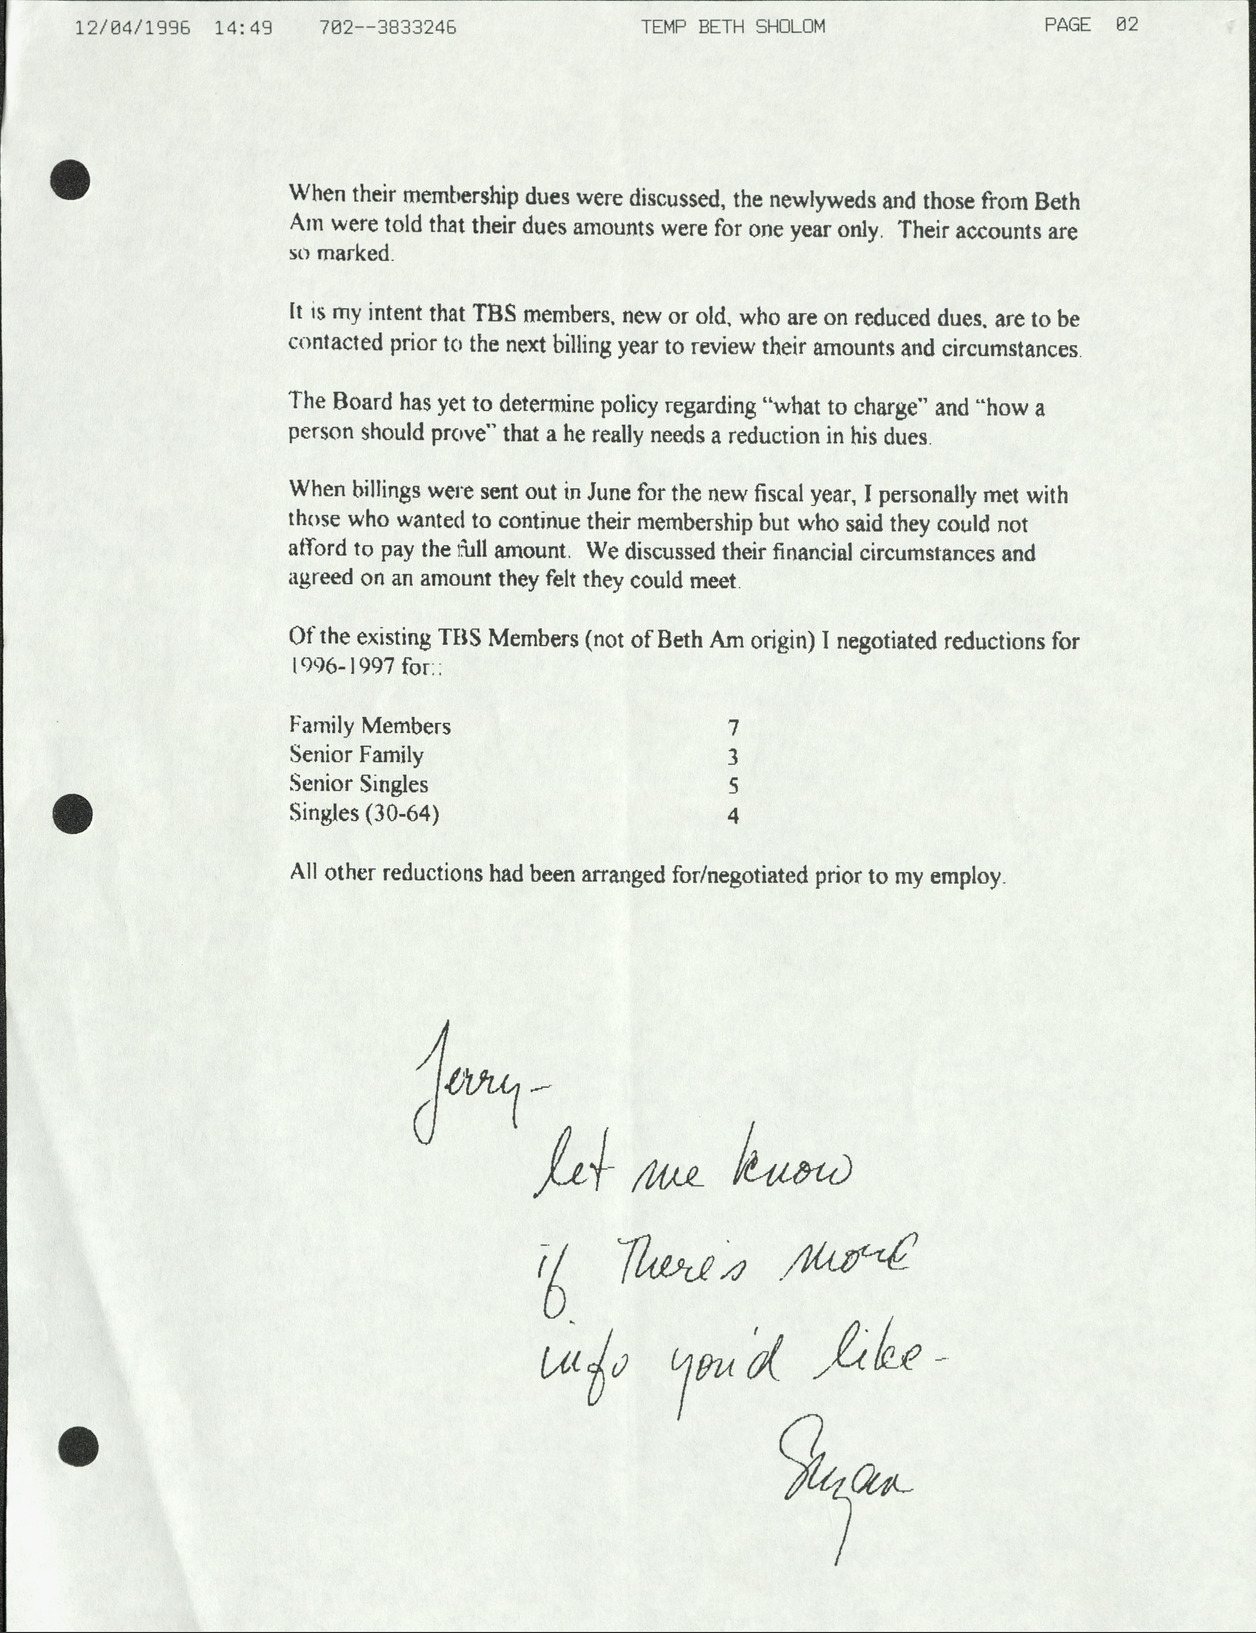 12/04/1996 14:49 702--3833246 TEMP BETH SHOLOM PAGE 02
When their membership dues were discussed, the newlyweds and those from Beth
Am were told that their dues amounts were for one year only. Their accounts are
so marked.
It is my intent that TBS members, new or old, who are on reduced dues, are to be
contacted prior to the next billing year to review their amounts and circumstances.
The Board has yet to determine policy regarding “what to charge” and “how a
person should prove” that a he really needs a reduction in his dues.
When billings were sent out in June for the new fiscal year, I personally met with
those who wanted to continue their membership but who said they could not
afford to pay the full amount. We discussed their financial circumstances and
agreed on an amount they felt they could meet.
Of the existing TBS Members (not of Beth Am origin) I negotiated reductions for
1996-1997 for::
Family Members 7
Senior Family 3
Senior Singles 5
Singles (30-64) 4
All other reductions had been arranged for/negotiated prior to my employ.
Jerry-
let me know
if There's more
info you'd like-
Suzan